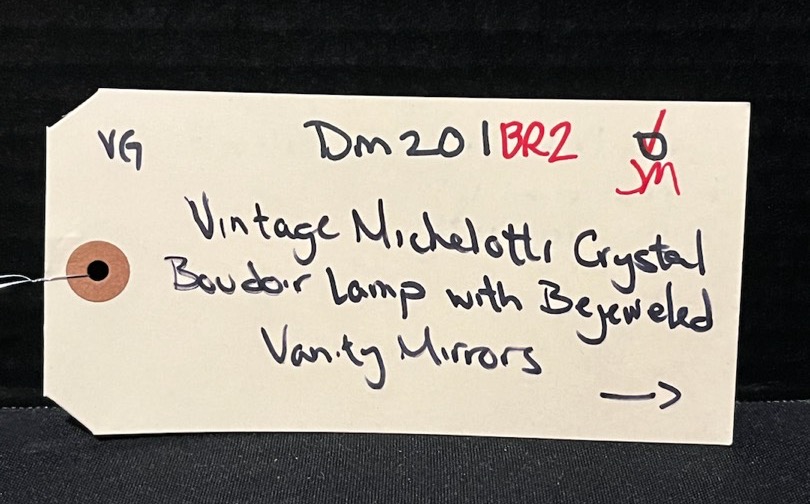 VG Dm201BR2
JM
Vintage Michelotti Crystal
Boudoir Lamp with Bejeweled
Vanity Mirrors
→